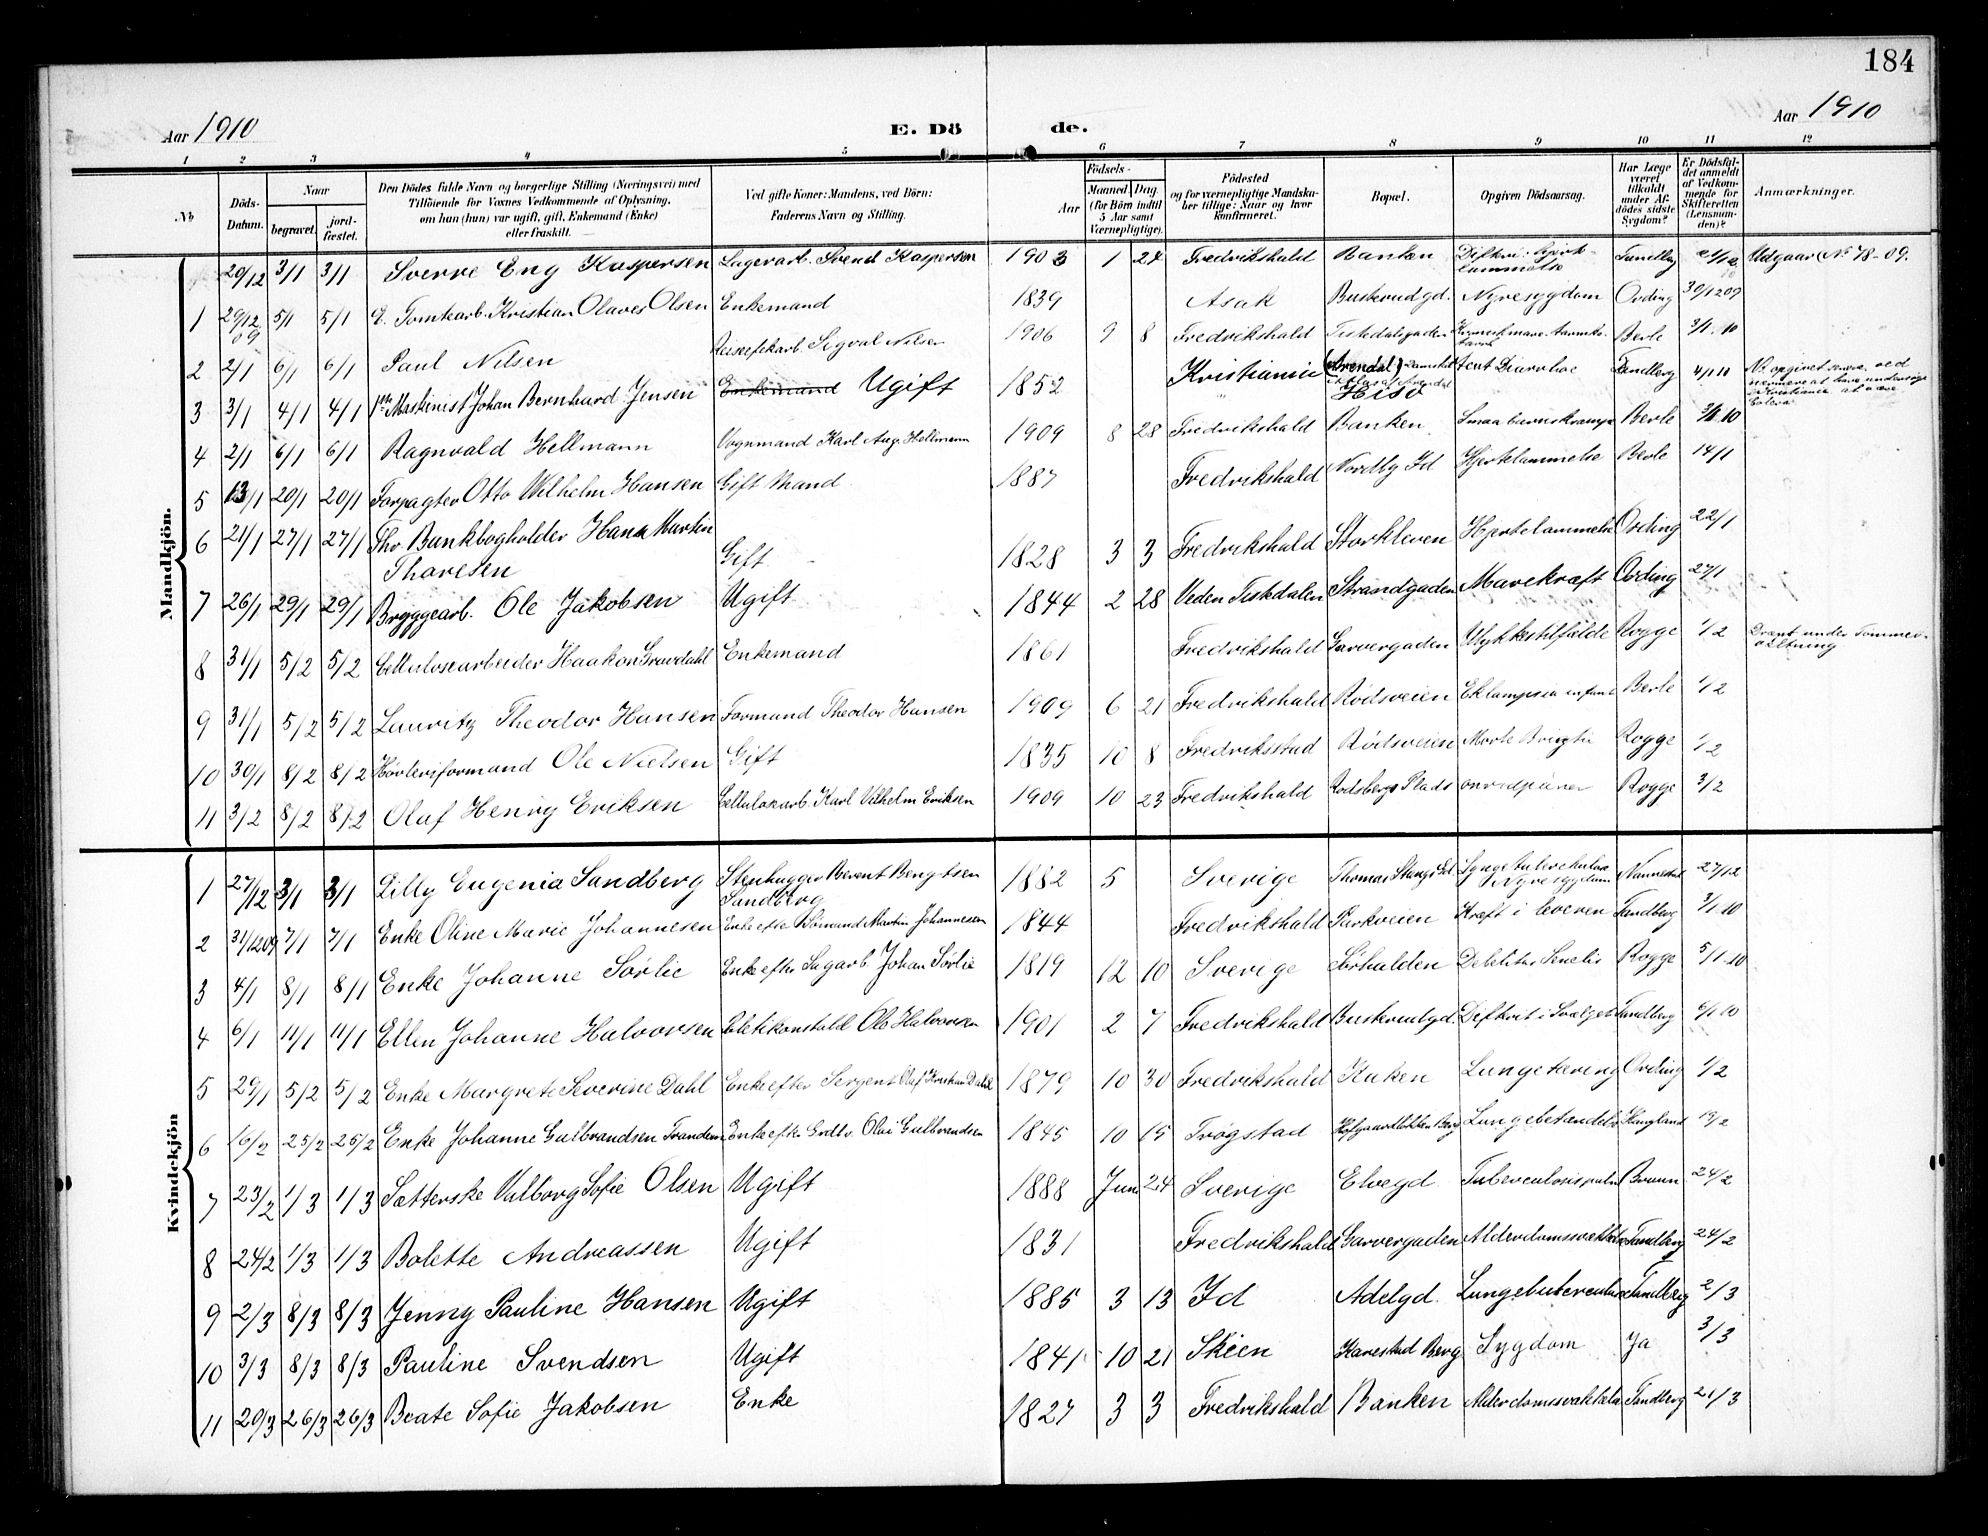 184
Aar 1910
E. Dö de.
Aar 1910
1 2 3 4 5 6 7 8 9 10 11 12
No
Döds-Datum.
Naar
begravet.
jord-fæstet.
Den Dödes fulde Navn og borgerlige Stilling (Næringsvei) med
Tilföiende for Voxnes Vedkommende af Oplysning,
om han (hun) var ugift, gift, Enkemand (Enke)
eller fraskilt.
Ved gifte Koner: Mandens, ved Börn:
Faderens Navn og Stilling.
Födsels-
Aar
Maaned
Dag.
(for Börn indtil
5 Aar samt
Værnepligtige).
Födested
og for værnepligtige Mandska-
ber tillige: Naar og hvor
konfirmeret.
Bopæl.
Opgiven Dödsaarsag.
Har Læge
været
tilkaldt
under Af-
dödes sidste
Sygdom?
Er Dödsfal-
det anmeldt
af Vedkom-
mende for
Skifteretten
(Lensman-
den)?
Anmærkninger.
Mandkjön.
29/12 3/1 3/1 Sverre Eng Kaspersen Lagerarb. Svend Kaspersen 1903 1 24 Fredrikshald Banken Difteri: Hjerte-lammelse Tandberg Udgaar (No 78-09.
1 29/12 09 5/1 5/1 E. Tomtearb. Kristian Olaves Olsen Enkemand 1839 Asak Buskerudgd. Nyresygdom Ording 30/12 09
2 2/1 6/1 6/1 Paul Nilsen Sigval Nilsen 1906 9 8 Fredrikshald Tistedalsgaden Berle 3/1.10
3 3/1 4/1 4/1 1ste Maskinist Johan Bernhard Jensen Enkemand Ugift 1852 Kristiania (Arendal) Hisö Acut Diarrhoe Tandberg 4/1 10
4 2/1 6/1 6/1 Ragnvald Hellmann Vognmand Karl Aug. Hellmann 1909 8 28 Fredrikshald Banken Smaabarnskrampe Berle 3/1.10
5 13/1 20/1 20/1 Forpagter Otto Wilhelm Hansen Gift Mand 1887 Fredrikshald Nordby Id Hjertelammelse Berle 14/1
6 21/1 27/1 27/1 Fhv. Bankbogholder Hans Martin
Thoresen Gift 1828 3 3 Fredrikshald Storkleven Hjertelammelse Ording 22/1
7 26/1 29/1 29/1 Bryggearb. Ole Jakobsen Ugift 1844 2 28 Veden Tistedalen Strandgaden Mavekræft Ording 27/1
8 31/1 5/2 5/2 Cellulosearbeider Haakon Gravdahl Enkemand 1861 Fredrikshald Garvergaden Ulykkestilfælde Rogge 1/2 Dræpt under Tommer-
9 31/1 5/2 5/2 Lauritz Theodor Hansen Formand Theodor Hansen 1909 6 21 Fredrikshald Rödsveien Eklampsia infant Berle 1/2
10 30/1 8/2 8/2 Hövleriformand Ole Nielsen Gift 1835 10 8 Fredrikstad Rödsveien Morb. Brigtii Rogge 1/2
11 3/2 8/2 8/2 Olaf Henry Eriksen Cellulosarb. Karl Vilhelm Eriksen 1909 10 23 Fredrikshald Rödsbergs Plads Rogge 3/2
Kvindekjön
1 27/12 3/1 3/1 Lilly Eugenia Sandberg Stenhugger Berent Bengtsen
Sandberg 1882 5 Sverige Thomas Stangs Gd. Nannestad 27/12
2 31/12 09 7/1 7/1 Enke Oline Marie Johannesen Enke efter Sömand Martin Johannesen 1844 Fredrikshald Parkveien Kræft i leveren Tandberg 3/1.10
3 4/1 8/1 8/1 Enke Johanne Sörlie Enke efter Sagarb. Johan Sörlie 1819 12 10 Sverige Sörhalden Debilitas Senelis Rogge 5/1.10
4 6/1 11/1 11/1 Ellen Johanne Halvorsen Politikonstabel Ole Halvorsen 1901 2 7 Fredrikshald Buskerudgd. Difterit i Svælget Tandberg 6/1 10
5 29/1 5/2 5/2 Enke Margrete Severine Dahl Enke efter Sergent Olaf Kristian Dahl 1879 10 30 Fredrikshald Kaken Lungetæring Ording 1/2
6 16/2 25/2 25/2 Enke Johanne Gulbrandsen Trandem Enke efter Grdbr. Olai Gulbrandsen 1845 10 15 Trögstad Hofgaardlökken Berg Lungebetændelse Haugland 19/2
7 23/2 1/3 1/3 Sætterske Valborg Sofie Olsen Ugift 1888 Juni 24 Sverige Elvegd Tuberculosis pulm Bruun 24/2
8 24/2 1/3 1/3 Bolette Andreassen Ugift 1831 Fredrikshald Garvergaden Alderdomssvækkelse Tandberg 24/2
9 2/3 8/3 8/3 Jenny Pauline Hansen Ugift 1885 3 13 Id Adelgd. Lungetuberculose Tandberg 2/3
10 3/3 8/3 8/3 Pauline Svendsen Ugift 1841 10 21 Skien Karrestad Berg Sygdom Ja 3/3
11 20/3 26/3 26/3 Beate Sofie Jakobsen Enke 1827 3 3 Fredrikshald Banken Alderdomssvækkelse Tandberg 21/3